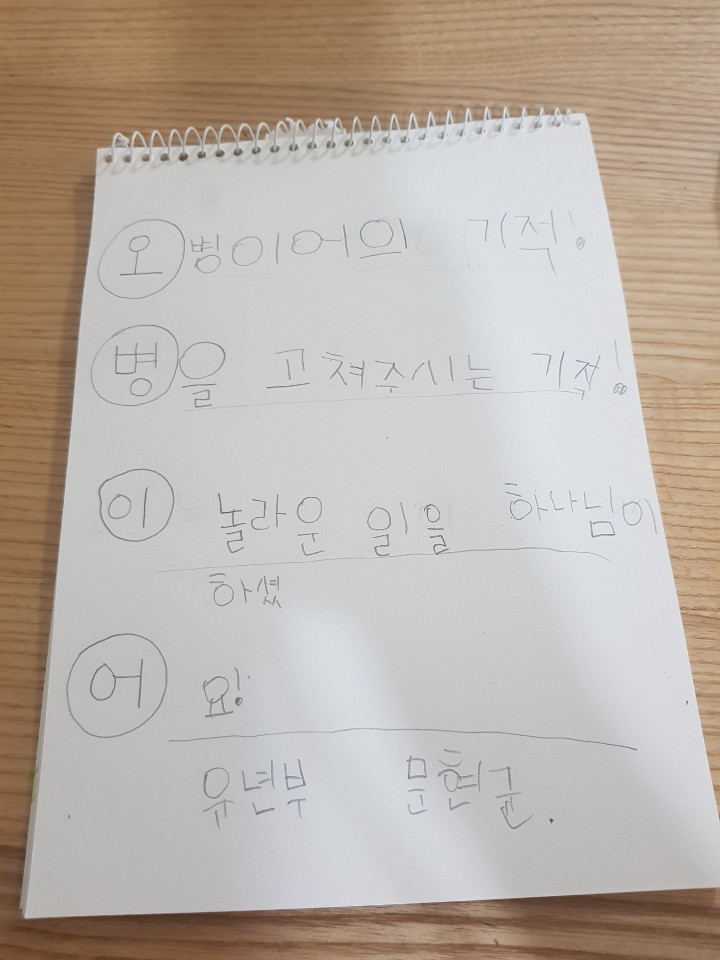 오병이어의 기적!
병을 고쳐주시는 기적!
이 놀라운 일을 하나님이
하셨
어 요!
유년부 문현균.